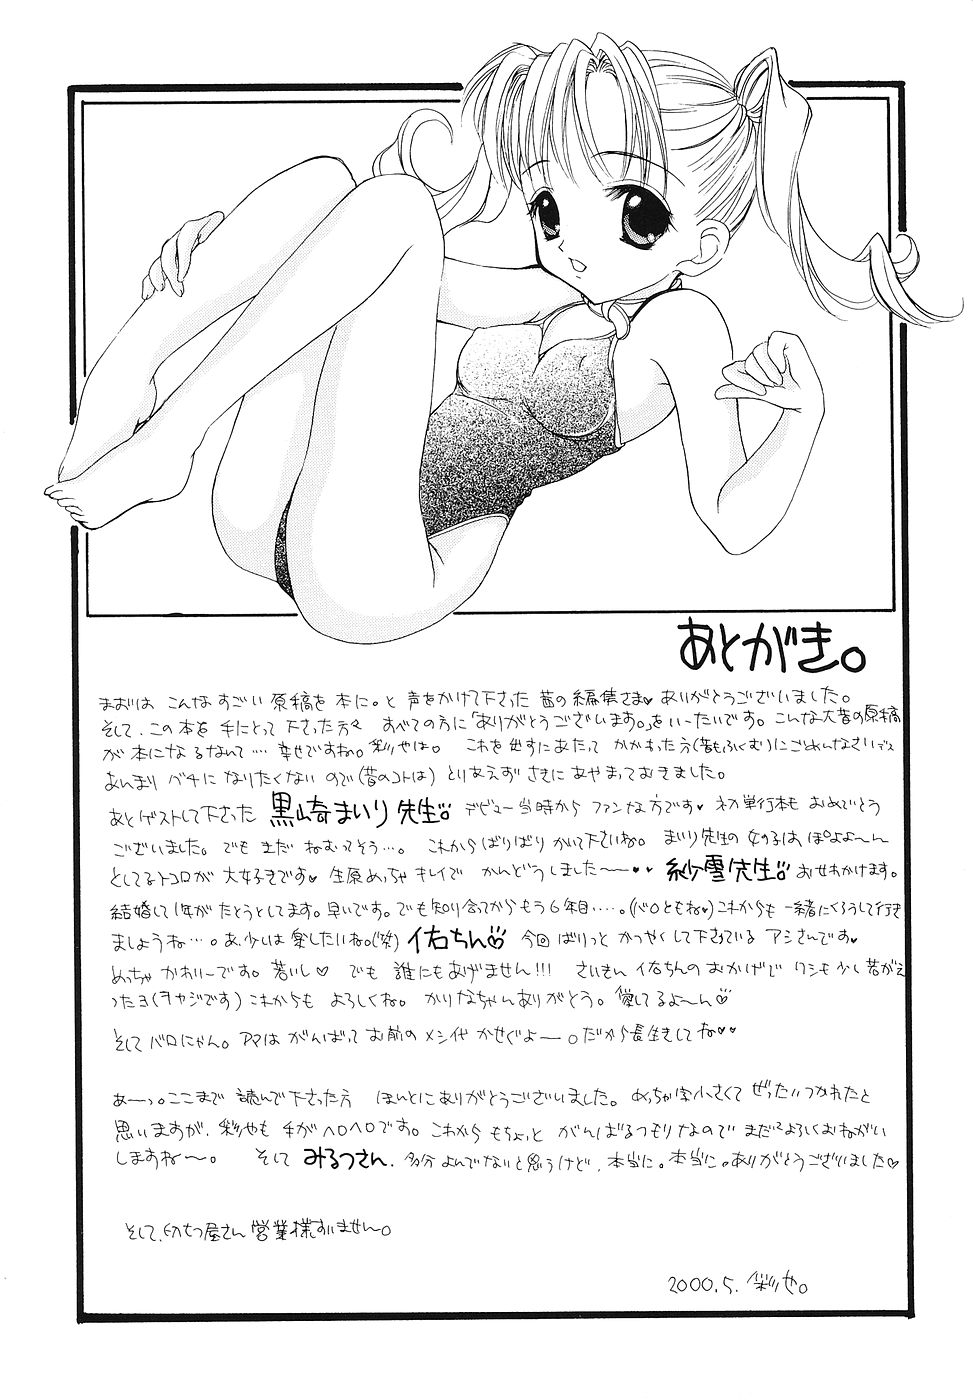 あとがき。
まおいは こんなすごい 原稿を 本に。と 声をかけて下さった 茜の編集さま♥ ありがとうございました。
そして、この本を 手にとって 下さった方々 すべての方に「ありがとうございます。」をい〜たいです。こんな大昔の原稿
が 本になるなんて… 幸せですね。彩やは。 これを出すにあたって かかわった方(昔もふくむ)にごめんなさいデス
あんまり バチに なりたくない ので(昔のコトは) とりあえず さきに あやまっておきました。
あとゲストして下さった 黒崎まいり先生。 デビュー当時から ファンな方です♥ 初単行本も おめでとう
ございました。でも まだ ねむってそう…。 これからばりばり かいて下さいね。 まいり先生の 女の子は、ぽよよ〜ん
としてるトコロが 大好きです♥ 生原めっちゃ キレイで かんどうしました〜〜♥♥ 紗雪先生。 おせわかけます。
結婚して1年がたとうとしてます。早いです。でも知り合てからもう6年目……。(バロともね♥)これからも 一緒にくろうして行き
ましょうね…。あ、少しは 楽したいね。(笑) 佑ちん♡ 今回 ばりっと かつやくして下さっている アシさんです♥
めっちゃ かわいーです。若いし♡ でも 誰にもあげません!!! さいきん 佑ちんのおかげで ワシも少し若がえ
ったヨ(オヤジです) これからも よろしくね。 かりなちゃんありがとう。愛してるよ〜ん♡
そして バロにゃん。アマは がんばって お前の メシ代 かせぐよー。だから長生きしてね♥♥
あーっ。ここまで 読んで下さった方 ほんとにありがとうございました。めっちゃ字小さくて ぜったいつかれたと
思いますが、彩やも 手がヘロヘロです。これから もちょっと がんばるつもりなので まだまだよろしくおねがい
しますね〜。 そして みるつさん、多分 よんでないと思うけど、本当に。本当に。ありがとうございました♡
そして、屋さん 営業様すいません。
2000.5. 彩や。